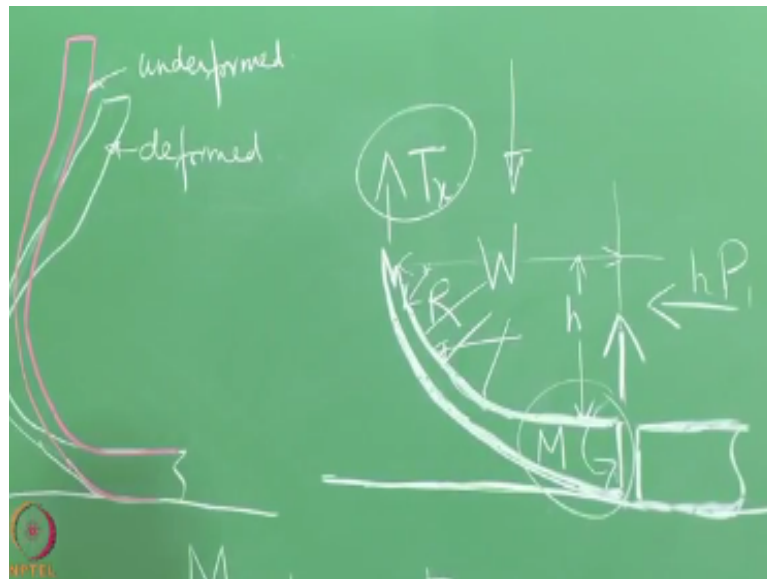 undeformed
deformed
Tx
W
R
h
hP1
M
M
NPTEL